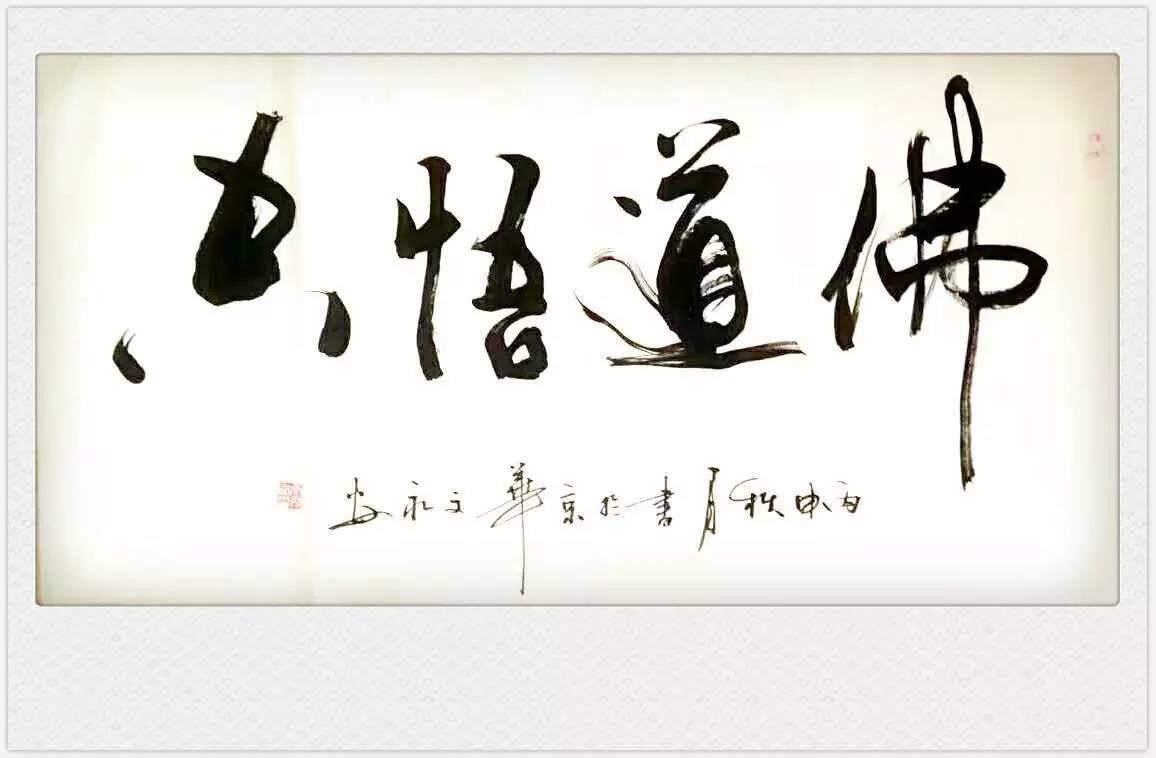 佛道悟真
丙申秋月書於京華文永安